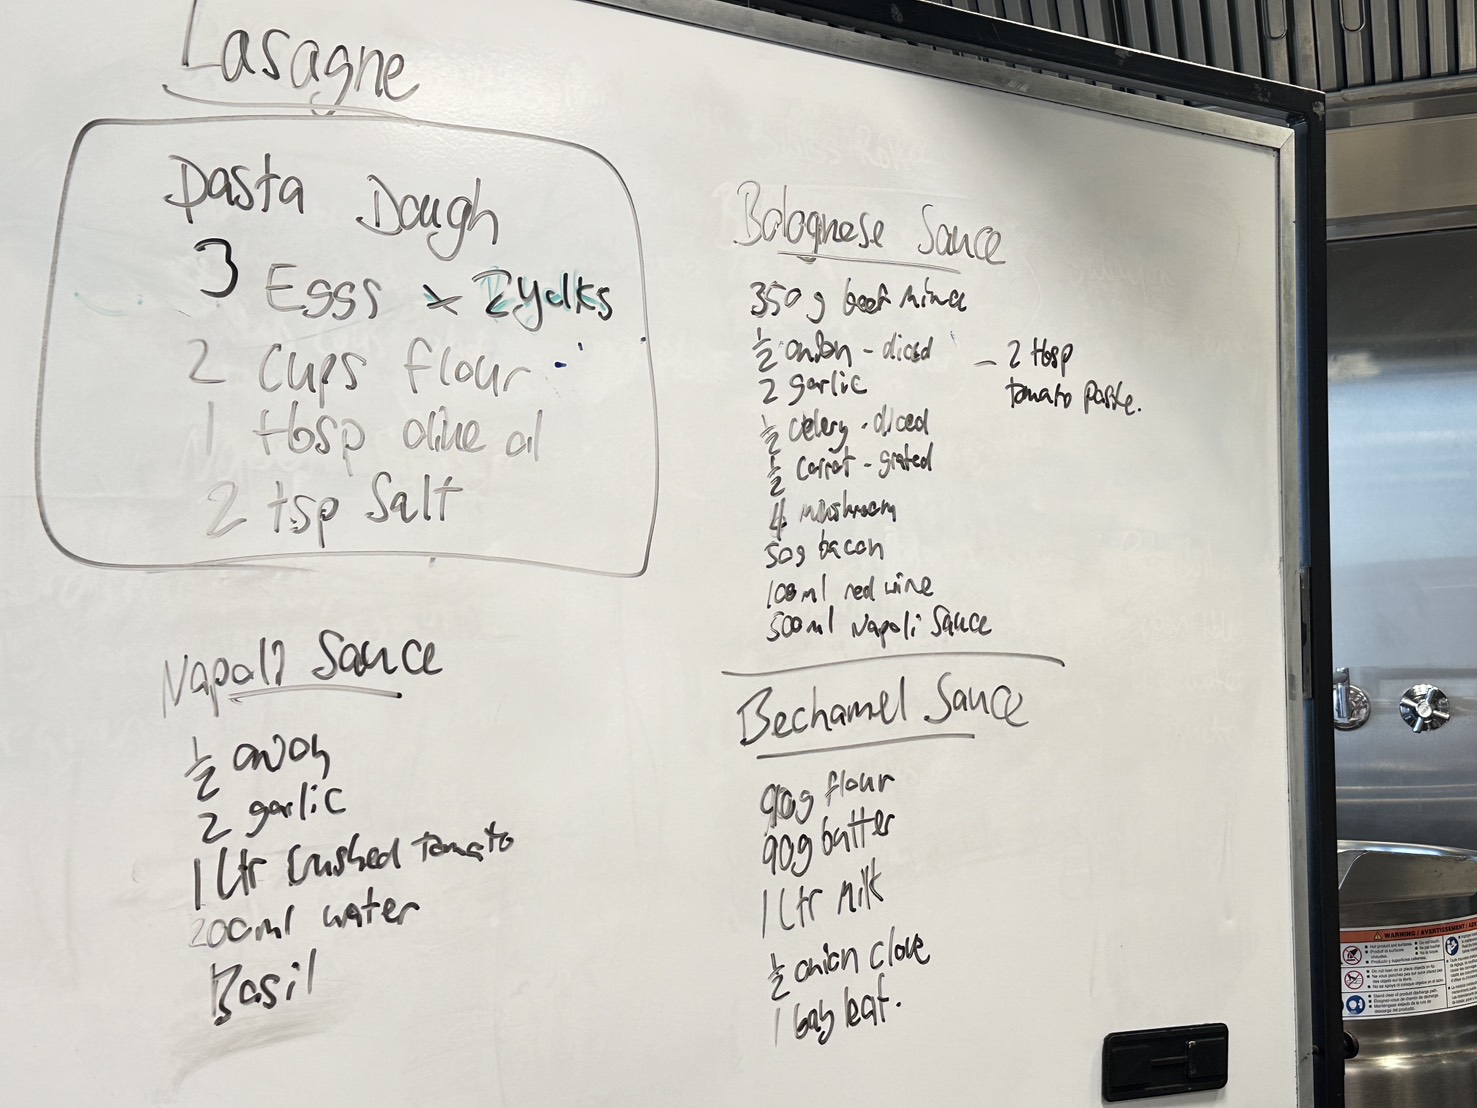 Lasagne
Pasta Dough
3 Eggs x 2 yolks
2 Cups flour
1 tbsp olive oil
2 tsp Salt
Napoli Sauce
½ onion
2 garlic
1 Ltr Crushed Tomato
200ml water
Basil
Bolognese Sauce
350g beef mince
½ onion - diced
2 garlic
½ celery - diced
½ carrot - grated
4 mushroom
50g bacon
100ml red wine
500ml Napoli Sauce
- 2 tbsp
tomato paste.
Bechamel Sauce
90g flour
90g butter
1 Ltr Milk
½ onion clove
1 bay leaf.
WARNING / AVERTISSEMENT /